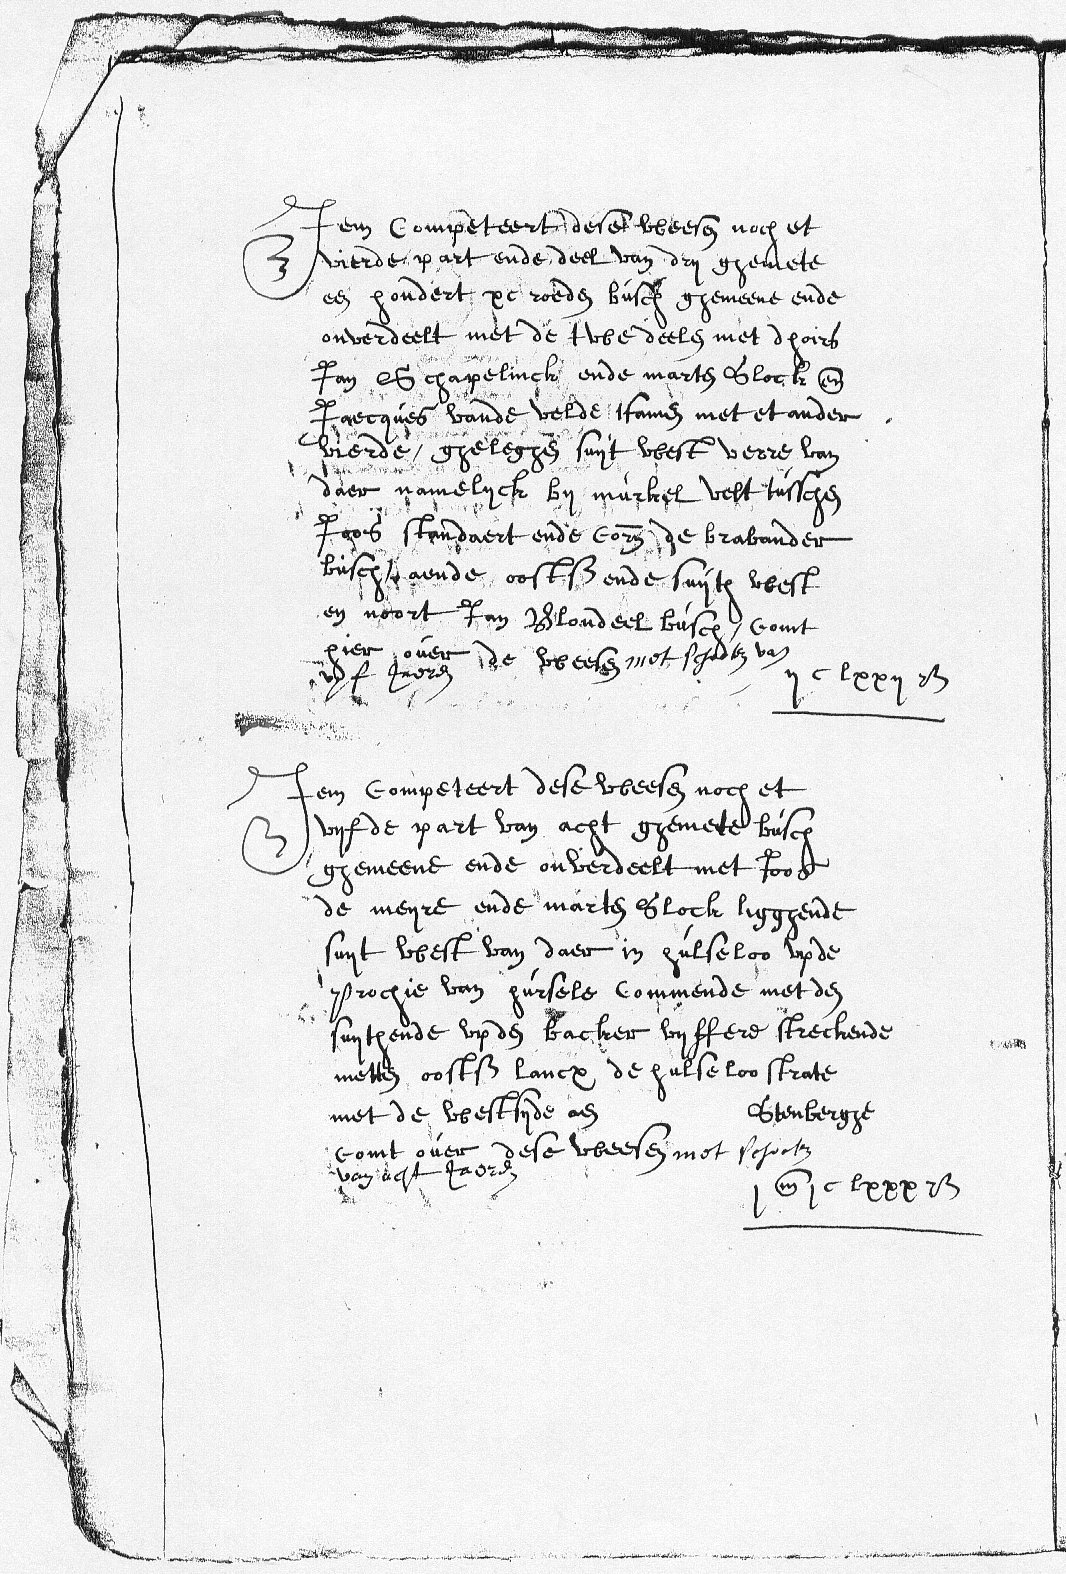 Item Competeert dese weesen noch et
vierde part ende deel van drij ghemete
een hondert xc roeden busch ghemeene ende
onverdeelt met de twee deelen met dhoirs
Jan Schapelinck ende marten Slock en
Jaecques vande velde tsamen met et ander
vierde / gheleghen suijt west verre van
daer namelijck bij murkel velt tusschen
Joos standaert ende Corn de brabander
busch / aende oostsz ende suijth west
en noort Jan Blondeel busch / Comt
hier over de weesen met schoeten van
vijf Jaeren
ij c lxxij R
Item Competeert dese weesen noch et
vijfde part van acht ghemete busch
ghemeene ende onverdeelt met Joos
de meijre ende marten Slock ligghende
suijt west van daer in hulseloo upde
Prochie van hursele Commende metden
suijthende upden backer vijffere streckende
metten oostsz lancx de hulseloo strate
met de westsijde aen Stenberghe
Comt over dese weesen met schoeten
van acht Jaeren
j m j c lxxx R